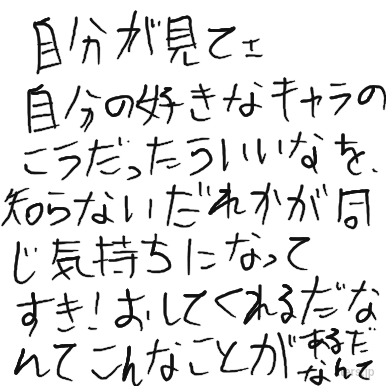 自分が見てエ
自分の好きなキャラの
こうだったらいいなを、
知らないだれかが同
じ気持ちになって
すき！おしてくれるだな
んてこんなことがあるだ
なんて